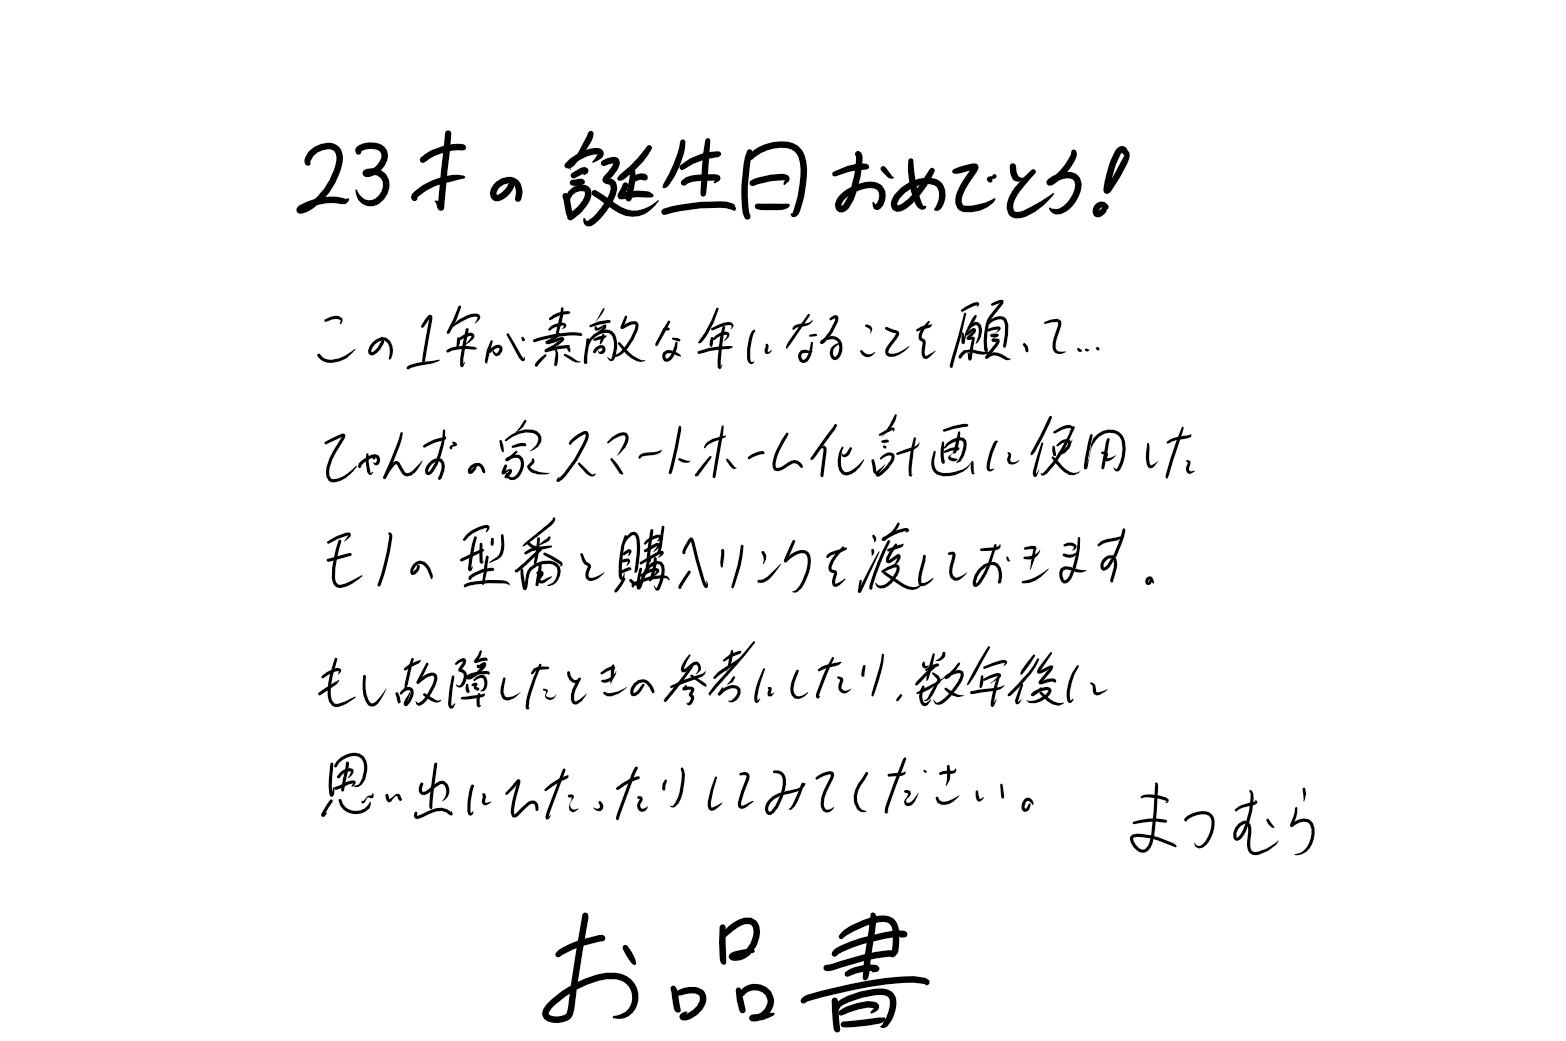 23才の誕生日おめでとう!
この1年が素敵な年になることを願って...
てゃんおの家スマートホーム化計画に使用した
モノの型番と購入リンクを渡しておきます。
もし故障したときの参考にしたり、数年後に
思い出にひたったりしてみてください。
まつむら
お品書